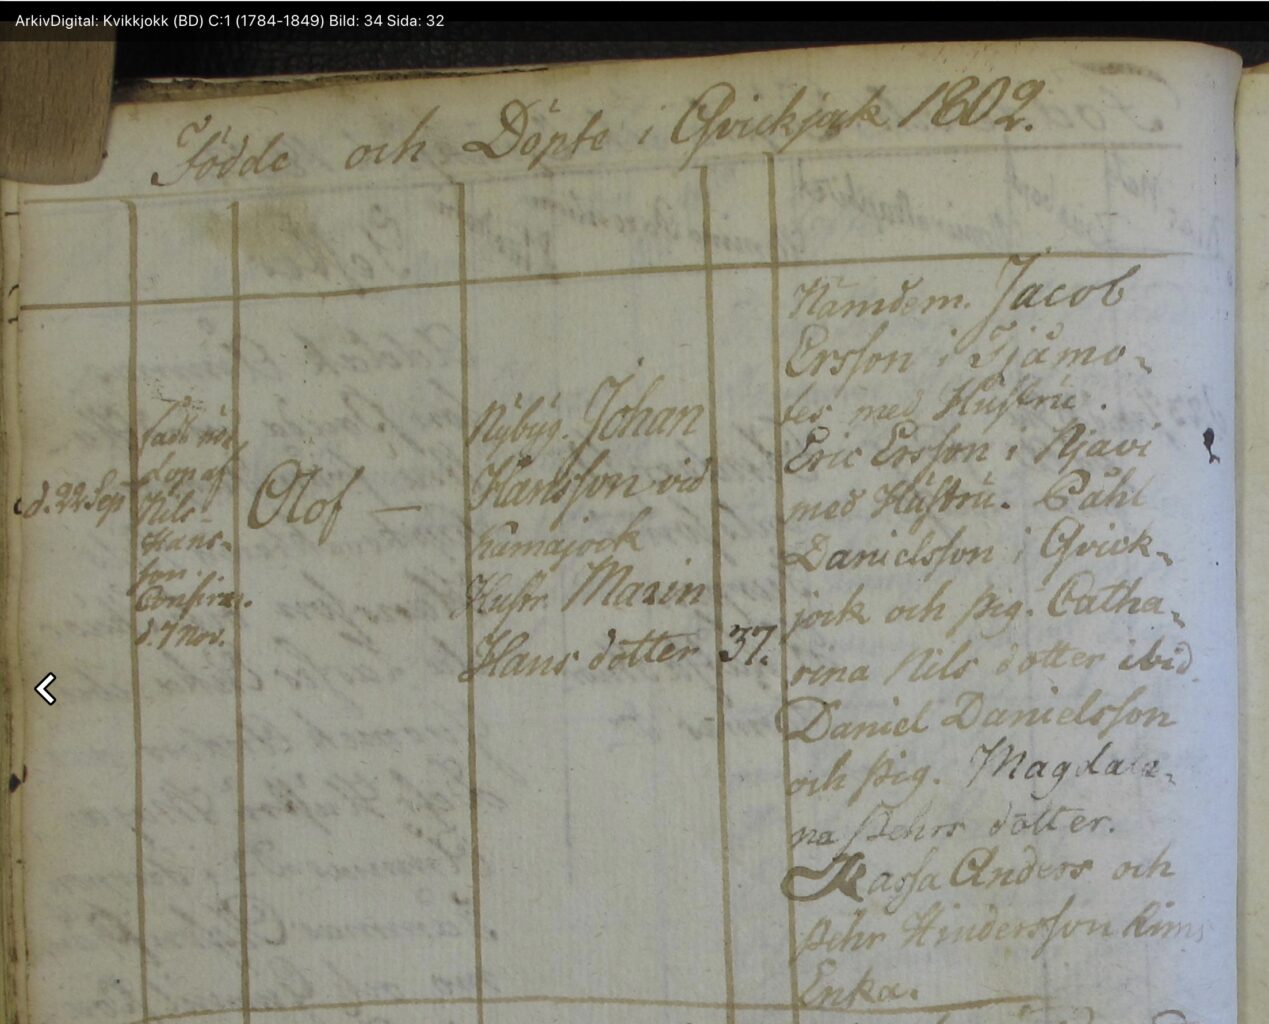 ArkivDigital: Kvikkjokk (BD) C:1 (1784-1849) Bild: 34 Sida: 32
Födde och Döpte i Qvickjock 1802.
d. 22 Sep
fadd nöd
dop af
Nils
Hans-
son.
Confirm.
d. 7 Nov.
Olof —
Nÿbÿg. Johan
Hansson vid
Kamajock
Hustr. Marin
Hans dotter
37.
Nämdem. Jacob
Ersson i Tjåmo-
tes med Hustru.
Eric Ersson i Njavi
med Hustru. Påhl
Danielsson i Qvick-
jock och pig. Catha-
rina Nils dotter ibid.
Daniel Danielsson
och pig. Magdale-
na Pehrs dotter.
Kassa Anders och
Pehr Hindersson
Enka.